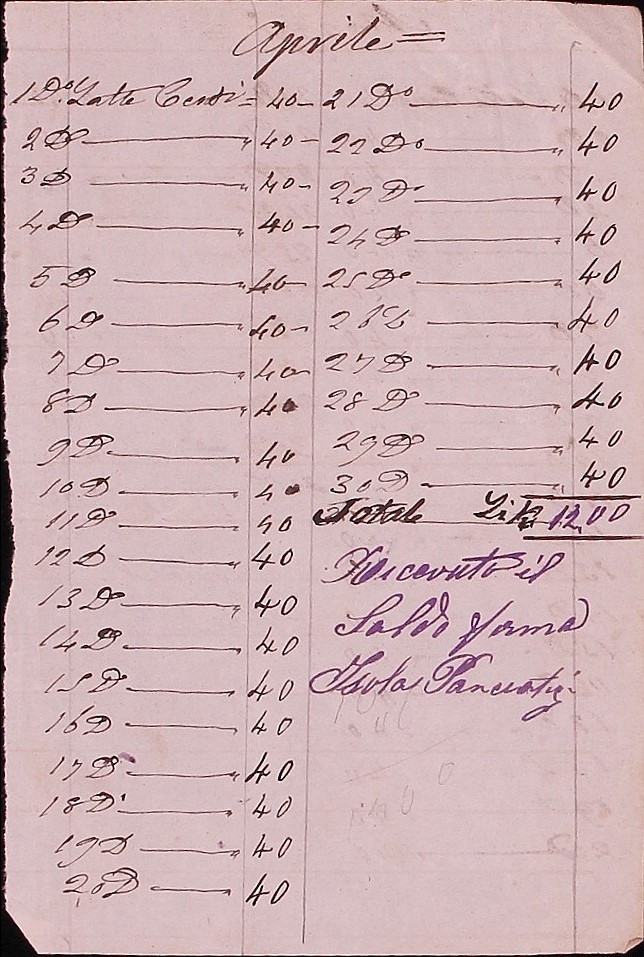 Aprile =
1 Do. Latte Centi = 40
2 D " 40
3 D " 40
4 D " 40
5 D " 40
6 D " 40
7 Do " 40
8 D " 40
9 D " 40
10 D " 40
11 D " 40
12 D " 40
13 D " 40
14 D " 40
15 D " 40
16 D " 40
17 D " 40
18 D " 40
19 D " 40
20 D " 40
21 Do " 40
22 Do " 40
23 Do " 40
24 D " 40
25 Do " 40
26 D " 40
27 D " 40
28 D " 40
29 D " 40
30 D " 40
Totale Lire 12,00
Ricevuto il
Saldo firma
Isola Pancrazi